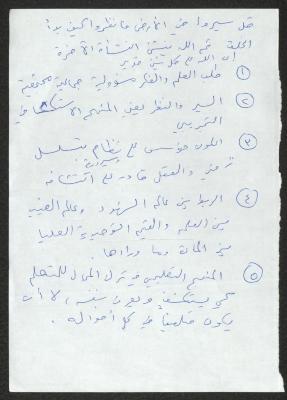 قل سيروا في الأرض فانظروا كيف بدأ
الخلق ثم الله ينشئ النشأة الآخرة
إن الله على كل شيء قدير
① طلب العلم والفكر مسؤولية جماعية مجتمعية
② السير والنظر يعني المنهج الاستكشافي
التجريبي
③ الكون مؤسس على نظام متسلسل
زمني والعقل قادر على اكتشافه
④ الربط بين عالم الشهود وعالم الغيب
بين العلم والقيم التوحيدية العليا
بين المادة وما وراءها.
⑤ المنهج التعليمي يترك المجال للمتعلم
كي يستكشف ويدرس بنفسه، لا أن
يكون متلقيا في كل أحواله.